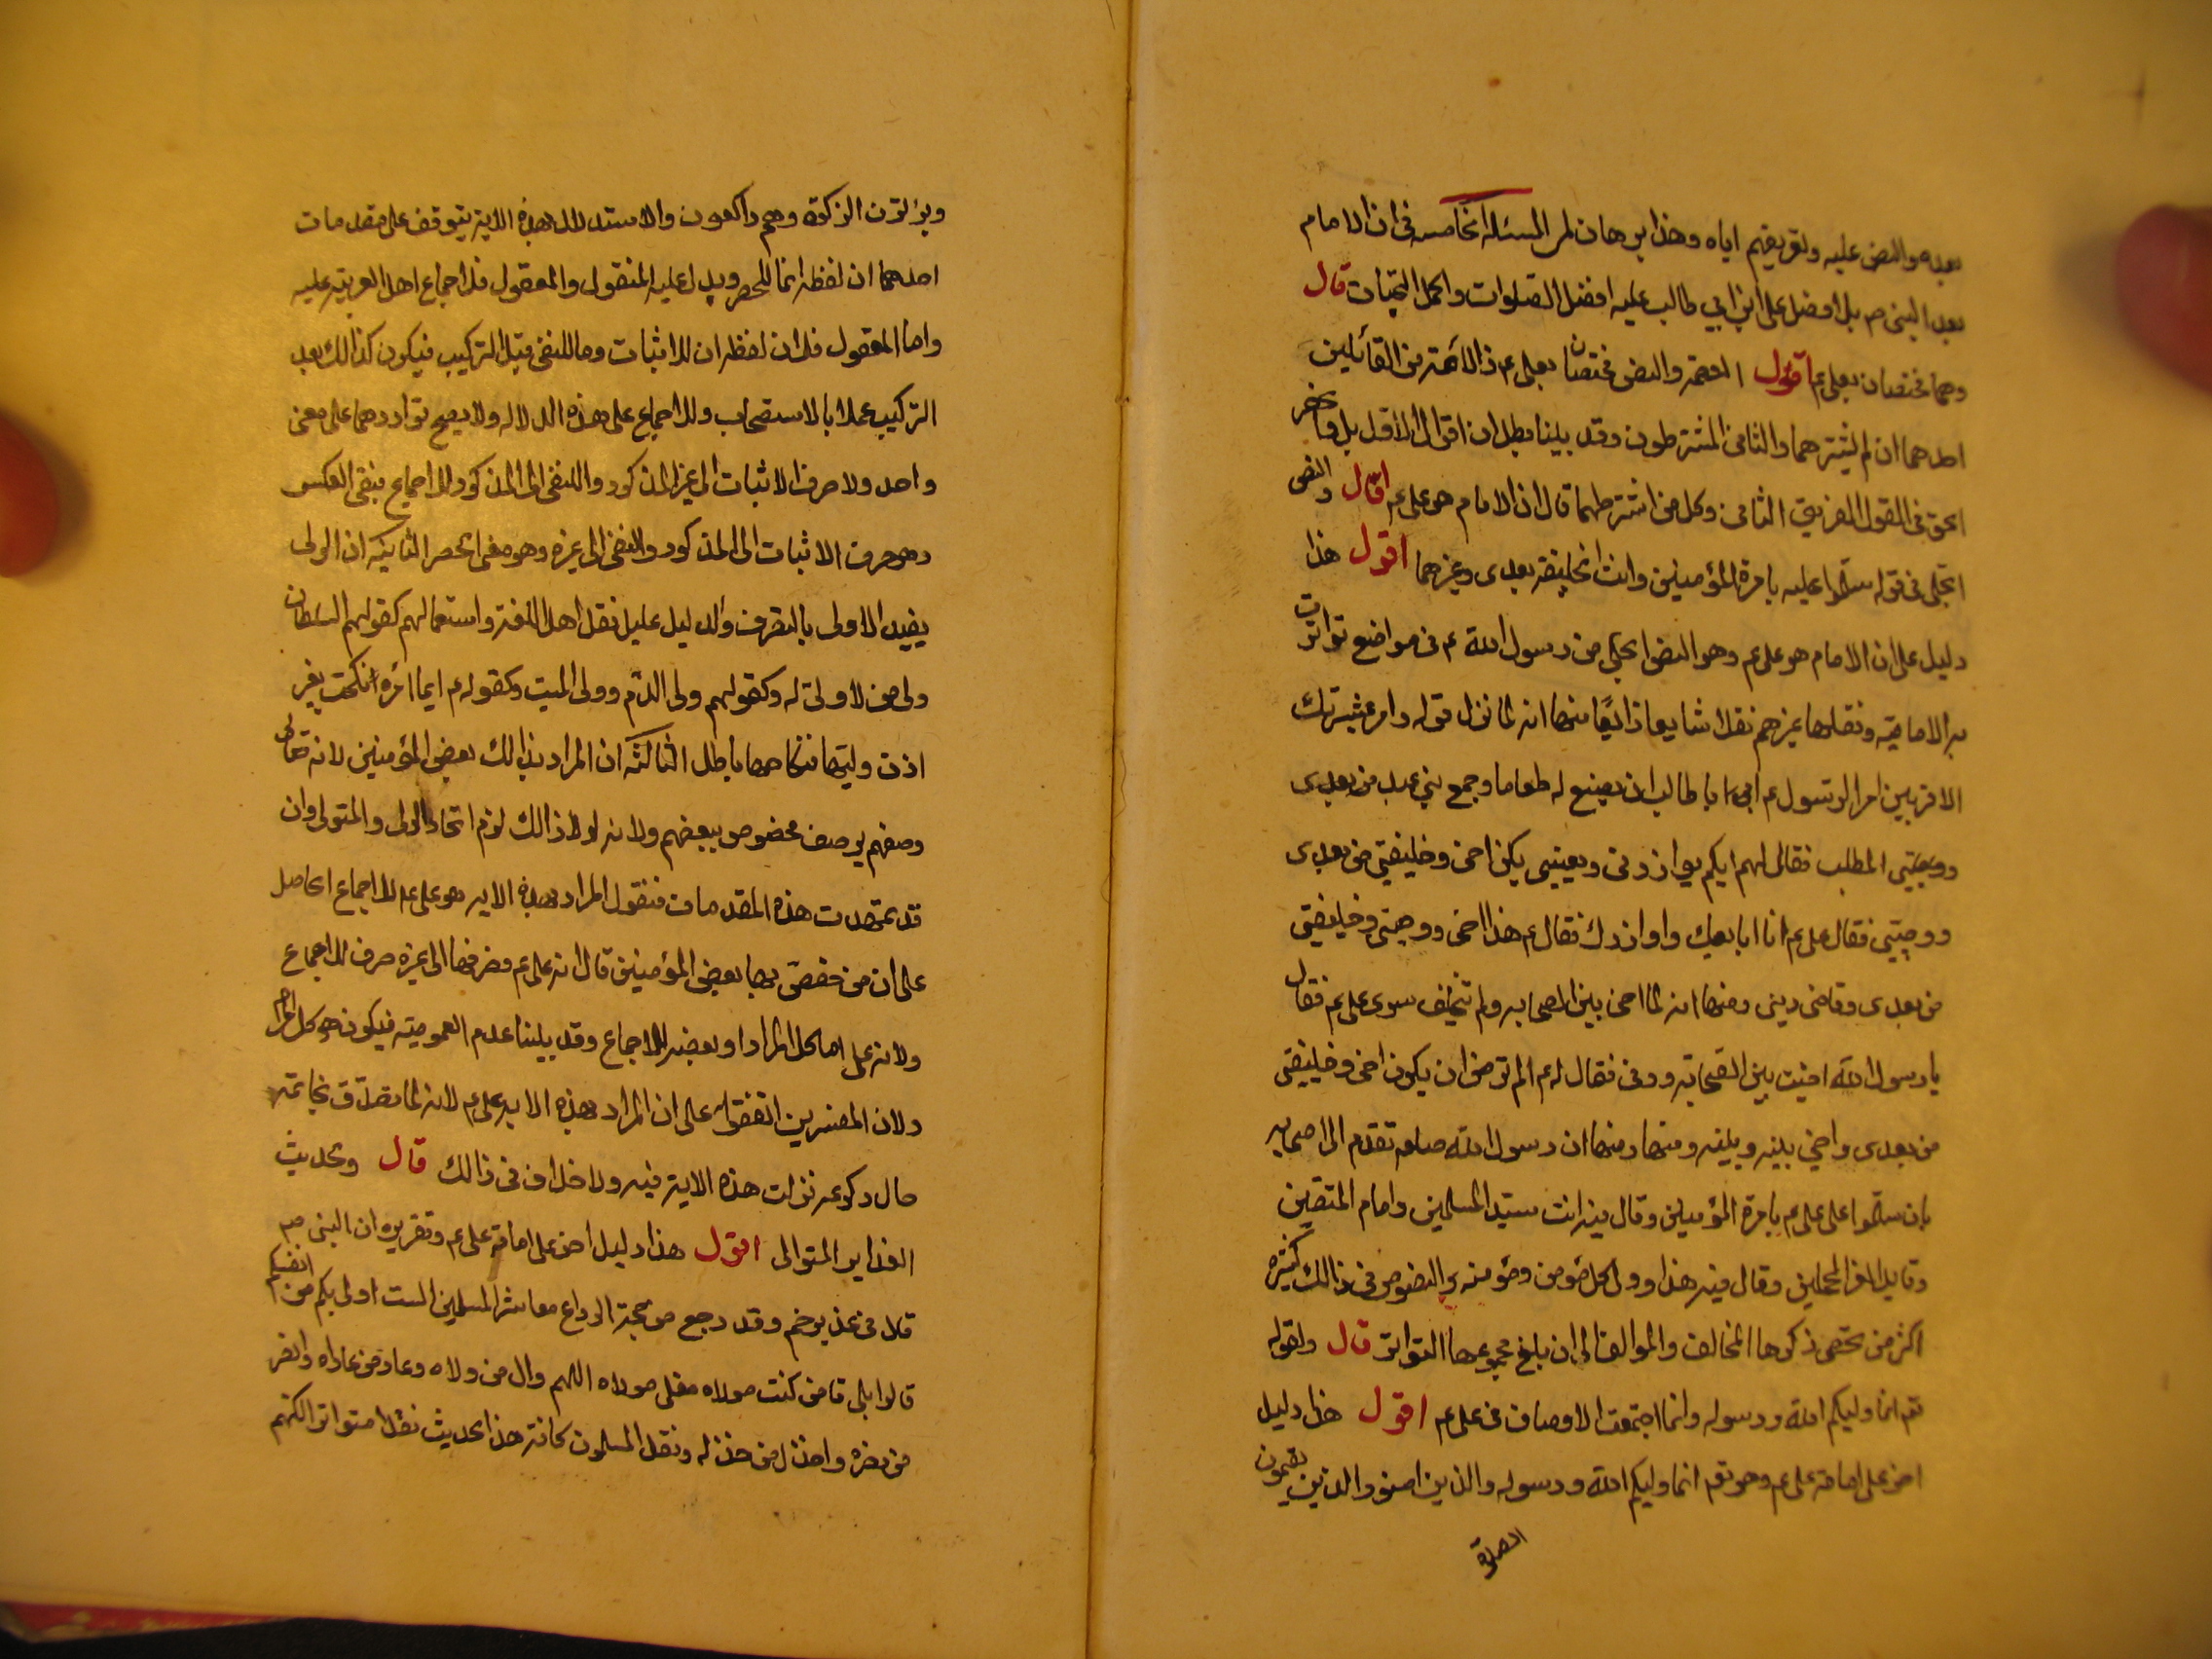 بعده والنص عليه وتعريفهم اياه وهذا برهان لمر المسئلة الخامسة فى ان الامام
بعد النبى ص بلا فصل على ابن ابي طالب عليه افضل الصلوات واكمل التحيات قال
وهما مختصان بعلى ع اقول العصمة والنص مختصان بعلى ع ذا لا ثمة من القائلين
احدهما ان لم يشترهما والثانى المشترطون وقد بينا بطلان اقوال الاول فانحصر
الحق فى القول الفريق الثانى وكل من اشترطهما قال ان الامام هو على ع اقال والنص
الجلى فى قوله سلموا عليه بامرة المؤمنين وانت الخليفة بعدى وغيرهما اقول هذا
دليل على ان الامام هو على ع وهو النص الجلى من رسول الله ع فى مواضع تواترت
به الامامية ونقلها غيرهم نقلا شايعا ذايعا منها انه لما نزل قوله وامر عشيرتك
الاقربين امر الرسول ع ابى ابا طالب ان يصنع له طعاما وجمع بني عبد من بعدى
ووصيتى المطلب فقال لهم ايكم يوازرنى ويعيننى يكن اخى وخليفتى من بعدى
ووصيتى فقال على ع انا ابايعك واوازرك فقال ع هذا اخى ووصيتى وخليفتى
من بعدى وقاضى دينى ومنها انه لما اخى بين الصحابه ولم تخلف سوى على ع فقال
يا رسول الله اخيت بين الصحابة ودونى فقال له ع الم ترض ان يكون اخى وخليفتى
من بعدى واخي بينه وبينه ومنها ومنها ان رسول الله صلعم تقدم الى اصحابه
بان سلموا على على ع بامرة المؤمنين وقال فيه انت سيد المسلمين وامام المتقين
وقايد الغر المحجلين وقال فيه هذا وولى كل مؤمن ومؤمنة والنصوص فى ذالك كثيره
اكثر من تحصى ذكرها المخالف والموالف الى ان بلغ مجموعها التواتر قال ولقوله
تعم انما وليكم الله ورسوله وانما اجتمعت الاوصاف فى على ع اقول هذا دليل
اخر على امامة على ع وهو تعم انما وليكم الله ورسوله والذين امنو والذين يقيمون
الصلوة
ويؤتون الزكوة وهم راكعون والاستدلال بهذه الاية يتوقف على مقدمات
احدهما ان لفظه انما للحصر ويدل عليه المنقول والمعقول فلاجماع اهل العربية عليه
واما المعقول فلان لفظه ان للاثبات وما للنفى قبل التركيب فيكون كذالك بعد
التركيب عملا بالاستصحاب وللاجماع على هذه الدلاله ولا يصح تواردهما على معنى
واحد ولا صرف الاثبات الى غير المذكور والنفى الى المذكور للاجماع فبقى العكس
وهو صرف الاثبات الى المذكور والنفى الى غيره وهو معنى الحصر الثانية ان الولى
يفيد الاولى بالتصرف والدليل عليه نقل اهل اللغة واستعمالهم كقولهم السلطان
ولى من لا ولى له وكقولهم ولى الدم وولى الميت وكقوله ع ايما امرءة انكحت بغير
اذن وليها فنكاحها باطل الثالثة ان المراد بذالك بعض المؤمنين لانه تعالى
وصفهم بوصف مخصوص ببعضهم ولانه لولا ذالك لزم اتحاد الولى والمتولى وان
قد تمهدت هذه المقدمات فنقول المراد بهذه الايه هو على ع للاجماع الحاصل
على ان من خصص بها بعض المؤمنين قال انه على ع فصرفها الى غيره خرق للاجماع
ولانه على اما كل المراد او بعضه للاجماع وقد بينا عدم العمومية فيكون هو كل المراد
ولان المفسرين اتفقوا على ان المراد بهذه الايه على ع لانه لما تصدق بخاتمه
حال ركوعه نزلت هذه الاية فيه ولا خلاف فى ذالك قال ولحديث
الغداير المتوالى اقول هذا دليل اخر على امامة على ع وتقريره ان النبى ص
قال فى غدير خم وقد رجع من حجة الوداع معاشر المسلمين الست اولى بكم من انفسكم
قالوا بلى قا من كنت مولاه فعلى مولاه اللهم وال من والاه وعاد من عاداه وانصر
من نصره واخذل من خذله ونقل المسلمون كافة هذا الحديث نقلا متواترا لكنهم